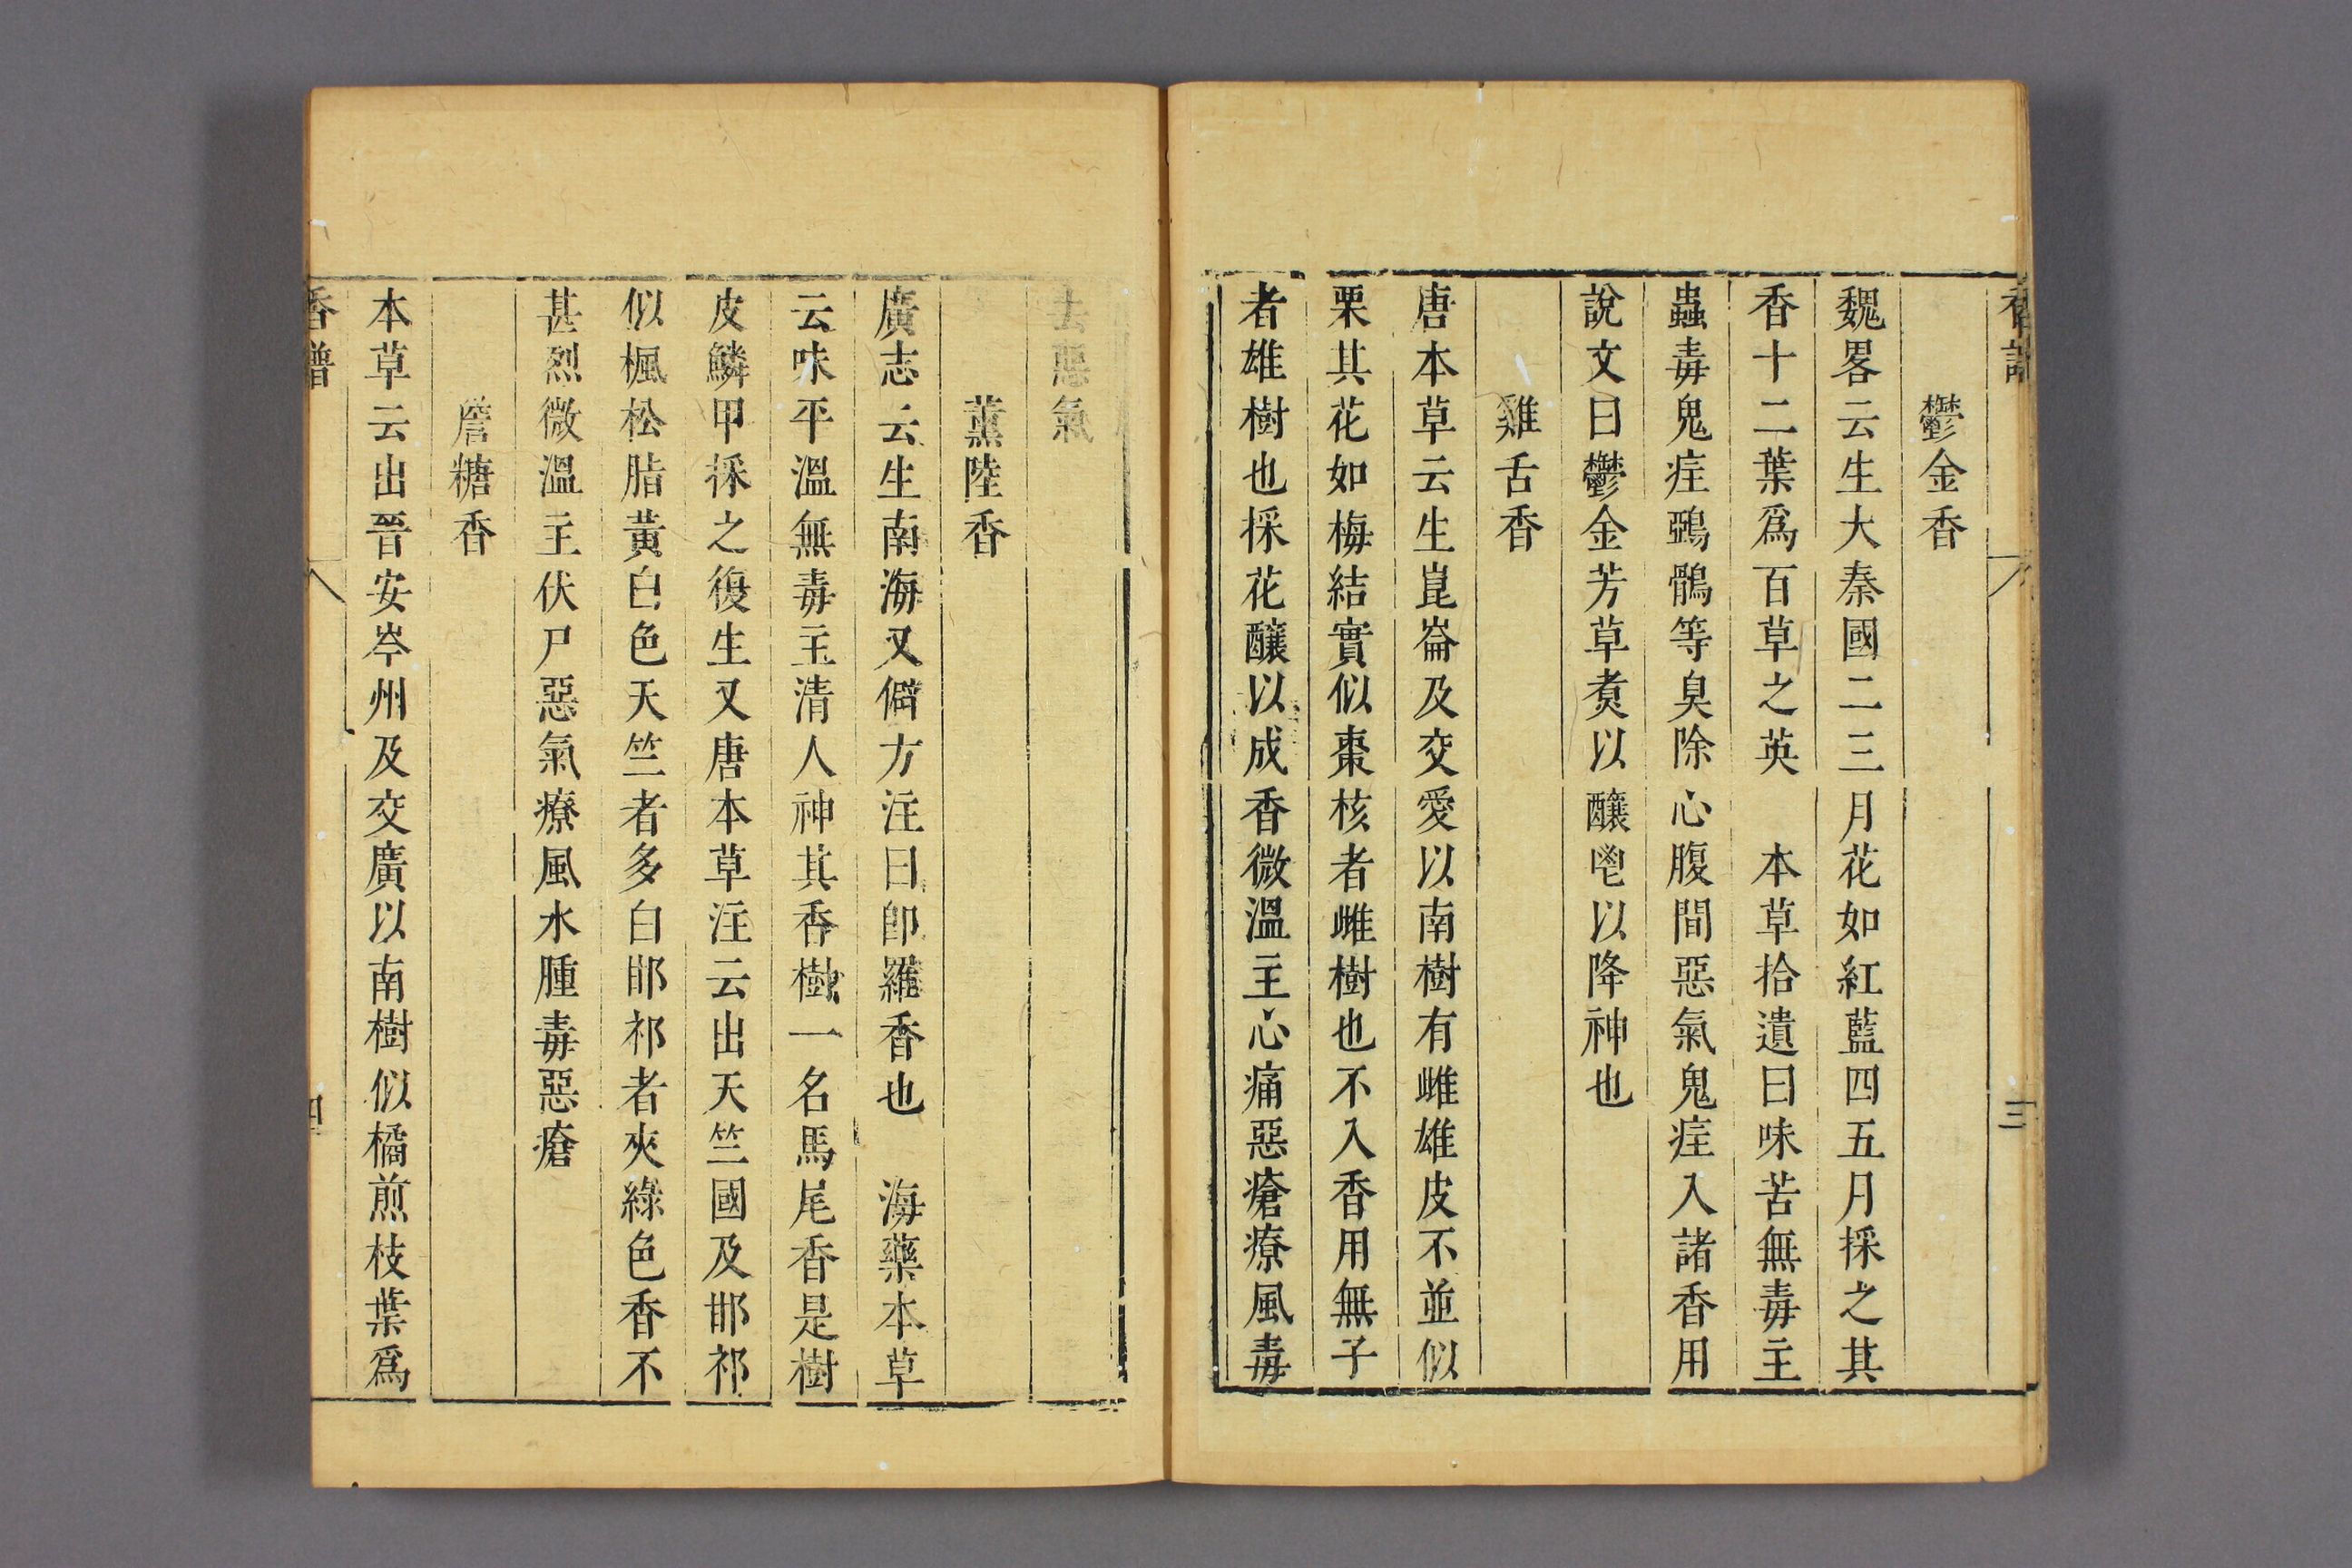 香譜
三
鬱金香
魏畧云生大秦國二三月花如紅藍四五月採之其
香十二葉爲百草之英　本草拾遺曰味苦無毒主
蟲毒鬼疰鵶鶻等臭除心腹間惡氣鬼疰入諸香用
說文曰鬱金芳草煑以釀鬯以降神也
雞舌香
唐本草云生崑崙及交愛以南樹有雌雄皮不並似
栗其花如梅結實似棗核者雌樹也不入香用無子
者雄樹也採花釀以成香微溫主心痛惡瘡療風毒
去惡氣
薰陸香
廣志云生南海又僻方注曰卽羅香也　海藥本草
云味平溫無毒主清人神其香樹一名馬尾香是樹
皮鱗甲採之復生又唐本草注云出天竺國及邯祁
似楓松脂黃白色天竺者多白邯祁者夾綠色香不
甚烈微溫主伏尸惡氣療風水腫毒惡瘡
詹糖香
本草云出晉安岑州及交廣以南樹似橘煎枝葉爲
香譜
四